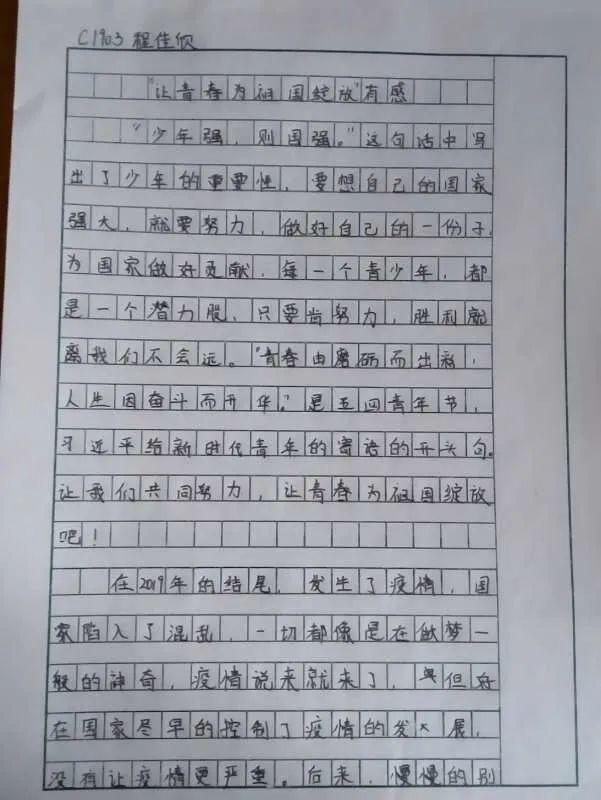 C1903 程佳欣
"让青春为祖国绽放"有感
"少年强，则国强。"这句话中写
出了少年的重要性，要想自己的国家
强大，就要努力，做好自己的一份子，
为国家做好贡献，每一个青少年，都
是一个潜力股，只要肯努力，胜利就
离我们不会远。"青春由磨砺而出彩，
人生因奋斗而升华。"是五四青年节，
习近平给新时代青年的寄语的开头句。
让我们共同努力，让青春为祖国绽放
吧！
在2019年的结尾，发生了疫情，国
家陷入了混乱，一切都像是在做梦一
般的神奇，疫情说来就来了，但好
在国家尽早的控制了疫情的发展，
没有让疫情更严重。后来，慢慢的别